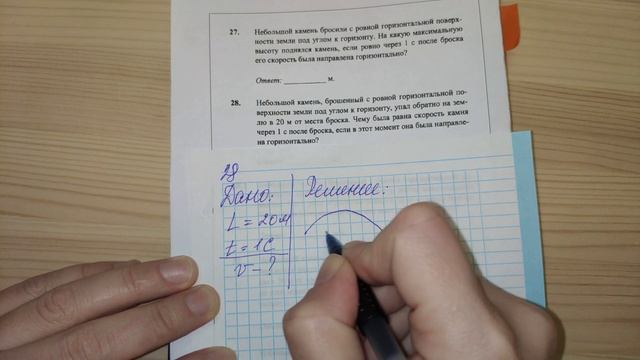 27. Небольшой камень бросили с ровной горизонтальной поверх-
ности земли под углом к горизонту. На какую максимальную
высоту поднялся камень, если ровно через 1 с после броска
его скорость была направлена горизонтально?
Ответ: ____________ м.
28. Небольшой камень, брошенный с ровной горизонтальной по-
верхности земли под углом к горизонту, упал обратно на зем-
лю в 20 м от места броска. Чему была равна скорость камня
через 1 с после броска, если в этот момент она была направле-
на горизонтально?
28
Дано: Решение:
L = 20м
t = 1с
v - ?